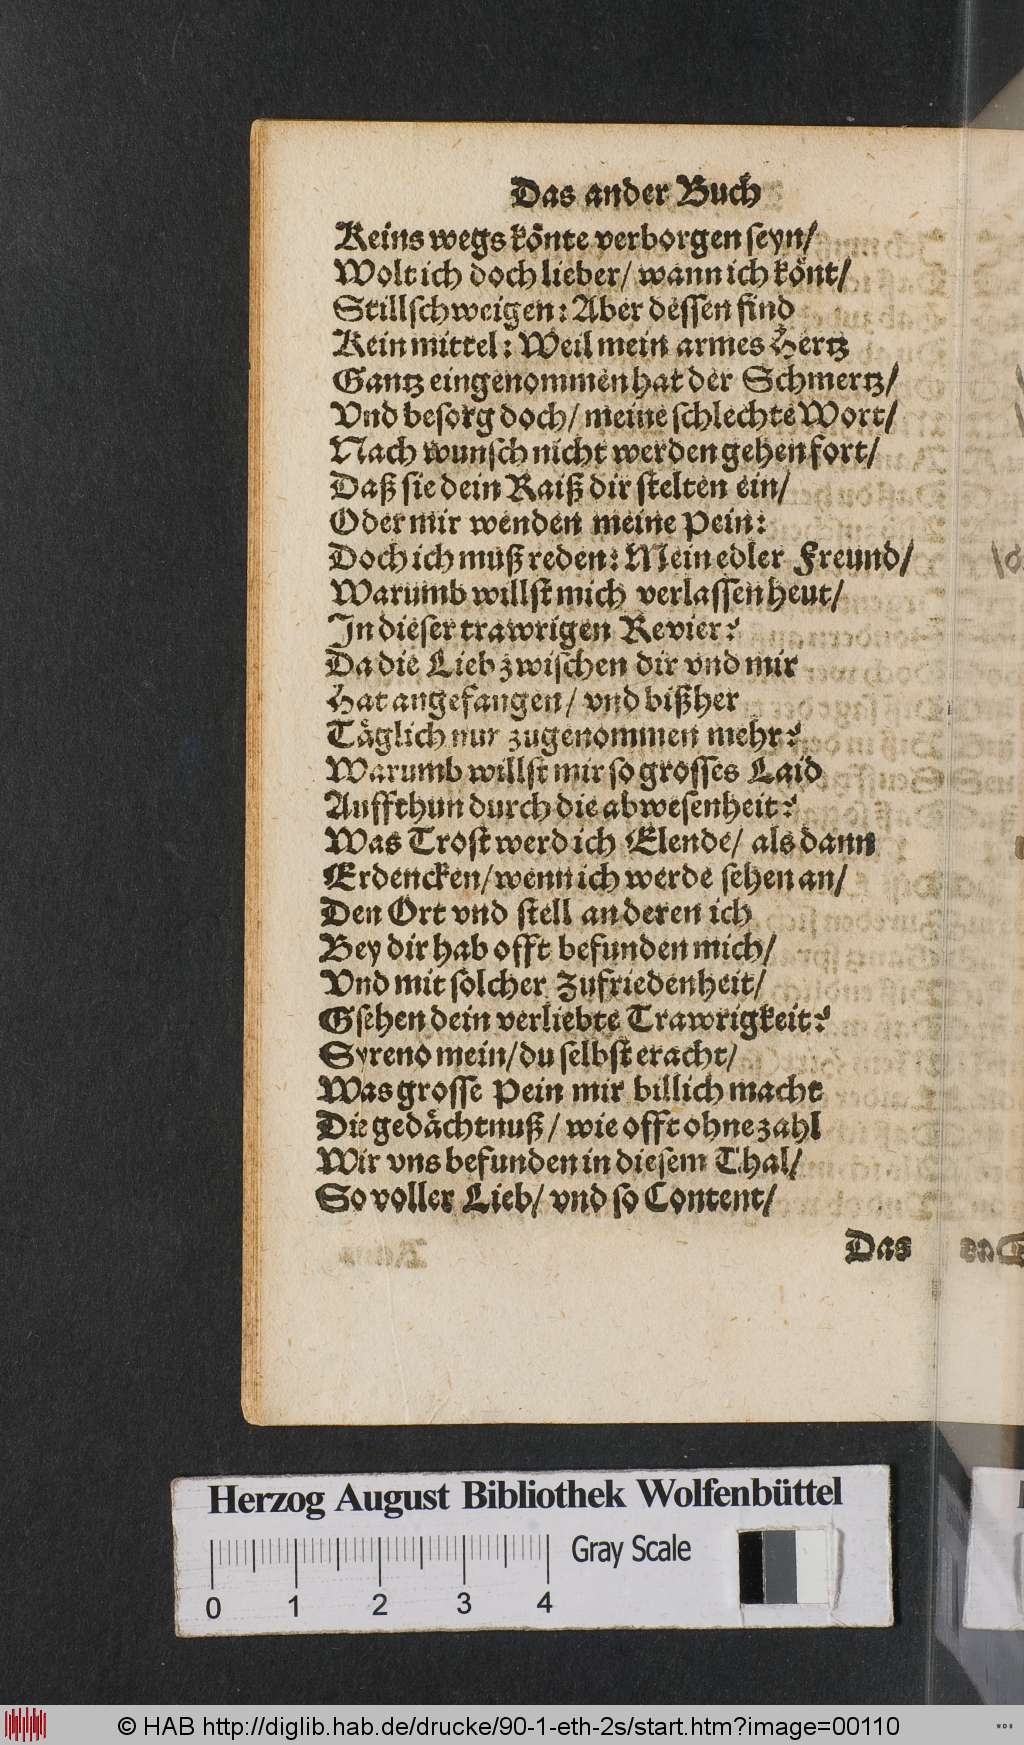 Das ander Buch
Keins wegs könte verborgen seyn/
Wolt ich doch lieber/ wann ich könt/
Stillschweigen: Aber dessen find
Kein mittel: Weil mein armes Hertz
Gantz eingenommen hat der Schmertz/
Vnd besorg doch/ meine schlechte Wort/
Nach wunsch nicht werden gehen fort/
Daß sie dein Raiß dir stelten ein/
Oder mir wenden meine Pein:
Doch ich muß reden: Mein edler Freund/
Warumb willst mich verlassen heut/
In dieser trawrigen Revier?
Da die Lieb zwischen dir vnd mir
Hat angefangen/ vnd bißher
Täglich nur zugenommen mehr?
Warumb willst mir so grosses Laid
Auffthun durch die abwesenheit?
Was Trost werd ich Elende/ als dann
Erdencken/ wenn ich werde sehen an/
Den Ort vnd stell an deren ich
Bey dir hab offt befunden mich/
Vnd mit solcher Zufriedenheit/
Gsehen dein verliebte Trawrigkeit?
Syreno mein/ du selbst eracht/
Was grosse Pein mir billich macht
Die gedächtnuß/ wie offt ohne zahl
Wir vns befunden in diesem Thal/
So voller Lieb/ vnd so Content/
Das
Herzog August Bibliothek Wolfenbüttel
Gray Scale
0 1 2 3 4
© HAB http://diglib.hab.de/drucke/90-1-eth-2s/start.htm?image=00110